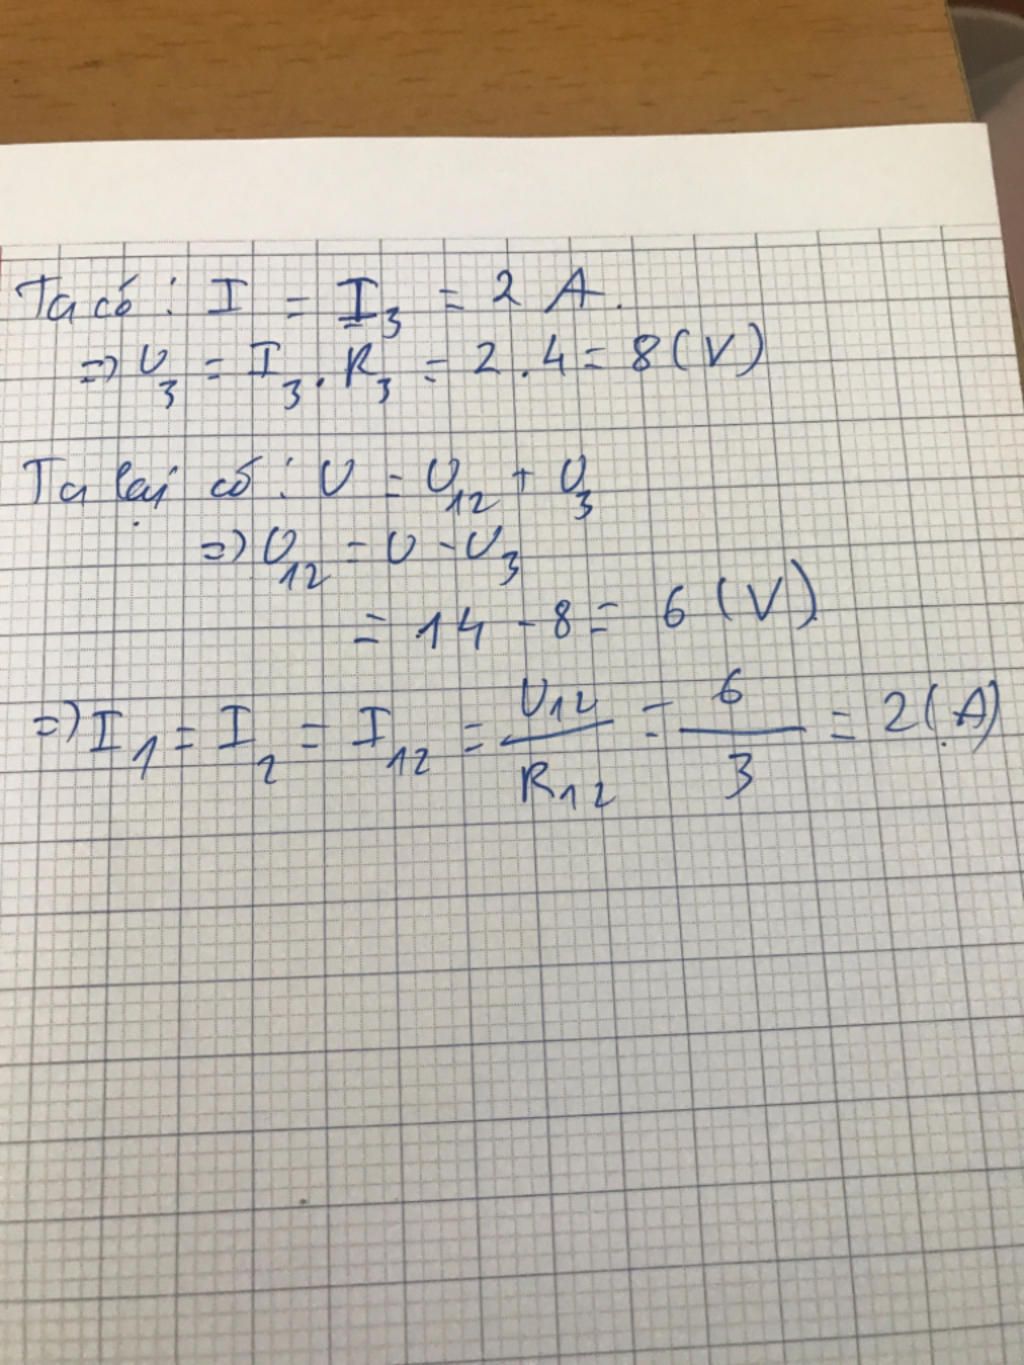 Ta có : I = I₃ = 2 A.
=> U₃ = I₃ . R₃ = 2 . 4 = 8 (V)
Ta lại có : U = U₁₂ + U₃
=> U₁₂ = U - U₃
= 14 - 8 = 6 (V)
=> I₁ = I₂ = I₁₂ = U₁₂/R₁₂ = 6/3 = 2 (A)